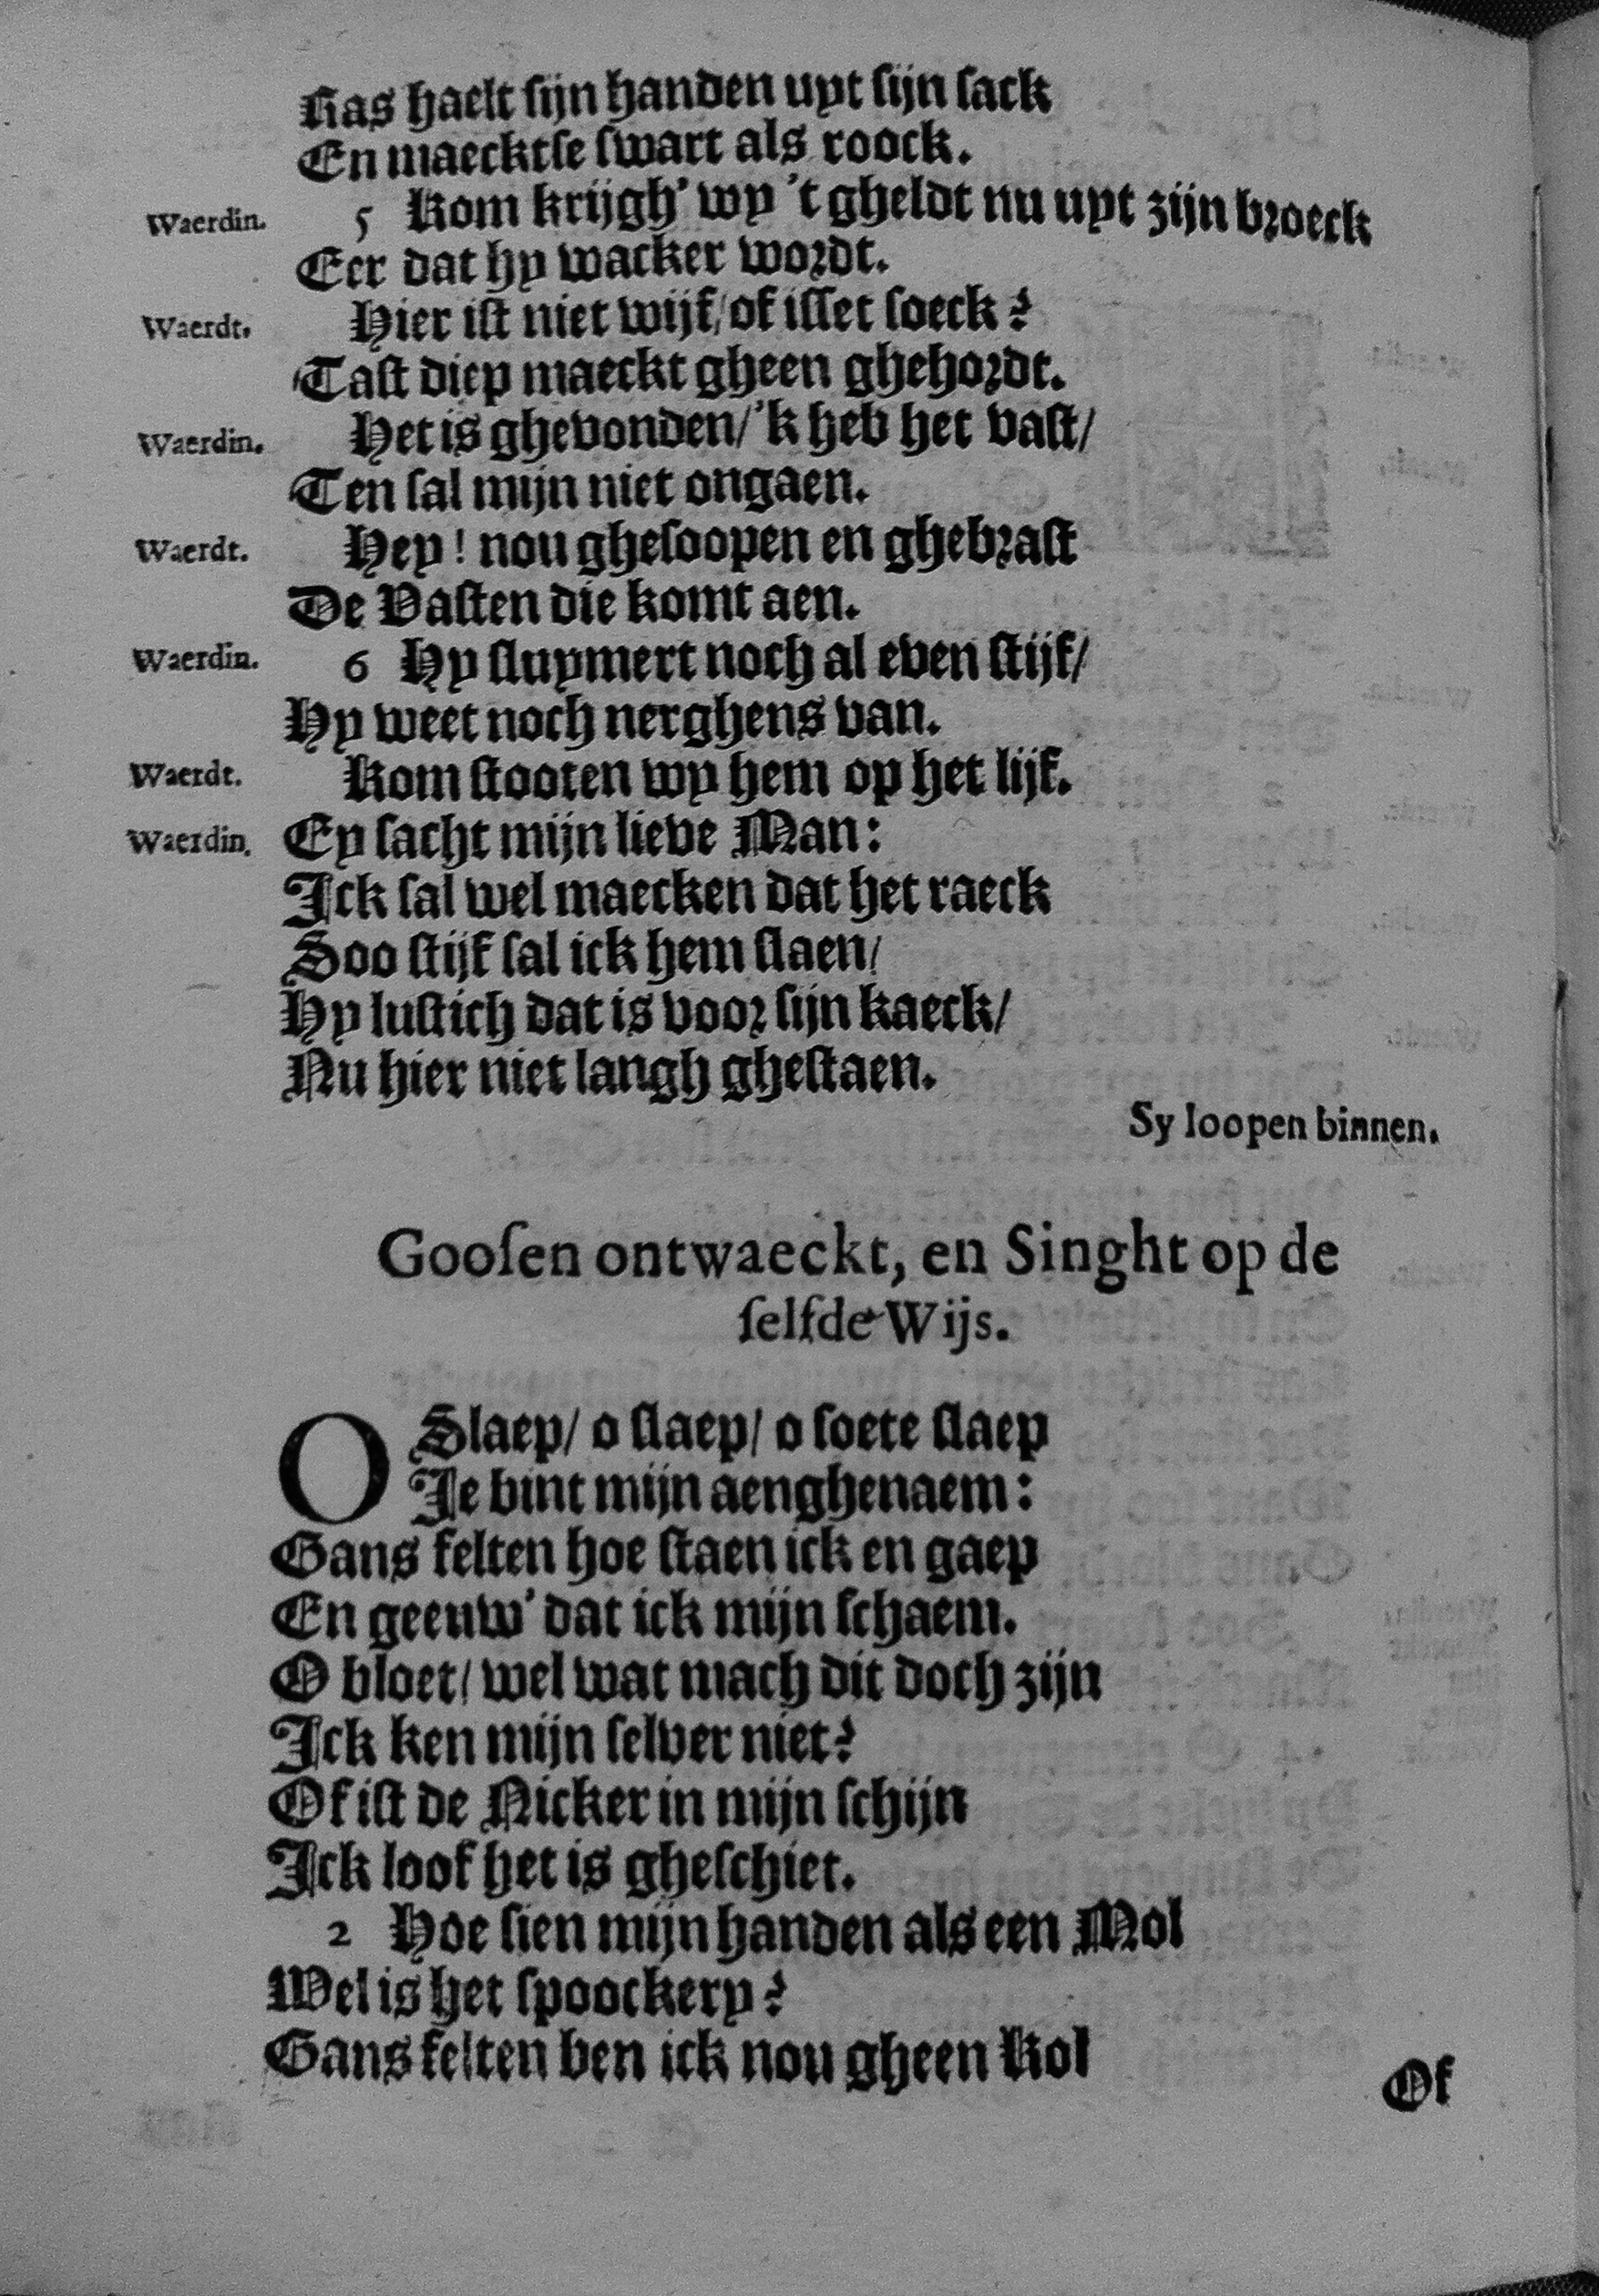 Ras haelt sijn handen uyt sijn sack
En maecktse swart als roock.
Waerdin. 5 Kom krijgh' wy 't gheldt nu uyt zijn broeck
Eer dat hy wacker wordt.
Waerdt. Hier ist niet wijf/ of isset soeck?
Tast diep maeckt gheen ghehordt.
Waerdin. Het is ghevonden/ 'k heb het vast/
Ten sal mijn niet ongaen.
Waerdt. Hey! nou ghesoopen en ghebrast
De Vasten die komt aen.
Waerdin. 6 Hy sluymert noch al even stijf/
Hy weet noch nerghens van.
Waerdt. Kom stooten wy hem op het lijf.
Waerdin. Ey sacht mijn lieve Man:
Ick sal wel maecken dat het raeck
Soo stijf sal ick hem slaen/
Hy lustich dat is voor sijn kaeck/
Nu hier niet langh ghestaen.
Sy loopen binnen.
Goosen ontwaeckt, en Singht op de
selfde Wijs.
O Slaep/ o slaep/ o soete slaep
Je bint mijn aenghenaem:
Gans felten hoe staen ick en gaep
En geeuw' dat ick mijn schaem.
O bloet/ wel wat mach dit doch zijn
Ick ken mijn selver niet?
Of ist de Nicker in mijn schijn
Ick loof het is gheschiet.
2 Hoe sien mijn handen als een Mol
Wel is het spoockery?
Gans felten ben ick nou gheen Kol
Of